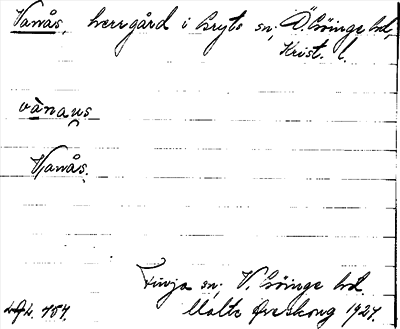 Vanås, herrgård i Gryts sn, Ö. Göinge hd,
Krist. l.
vànaus
Vanås.
Finja sn, V. Göinge hd.
Malte Areskoug 1927.